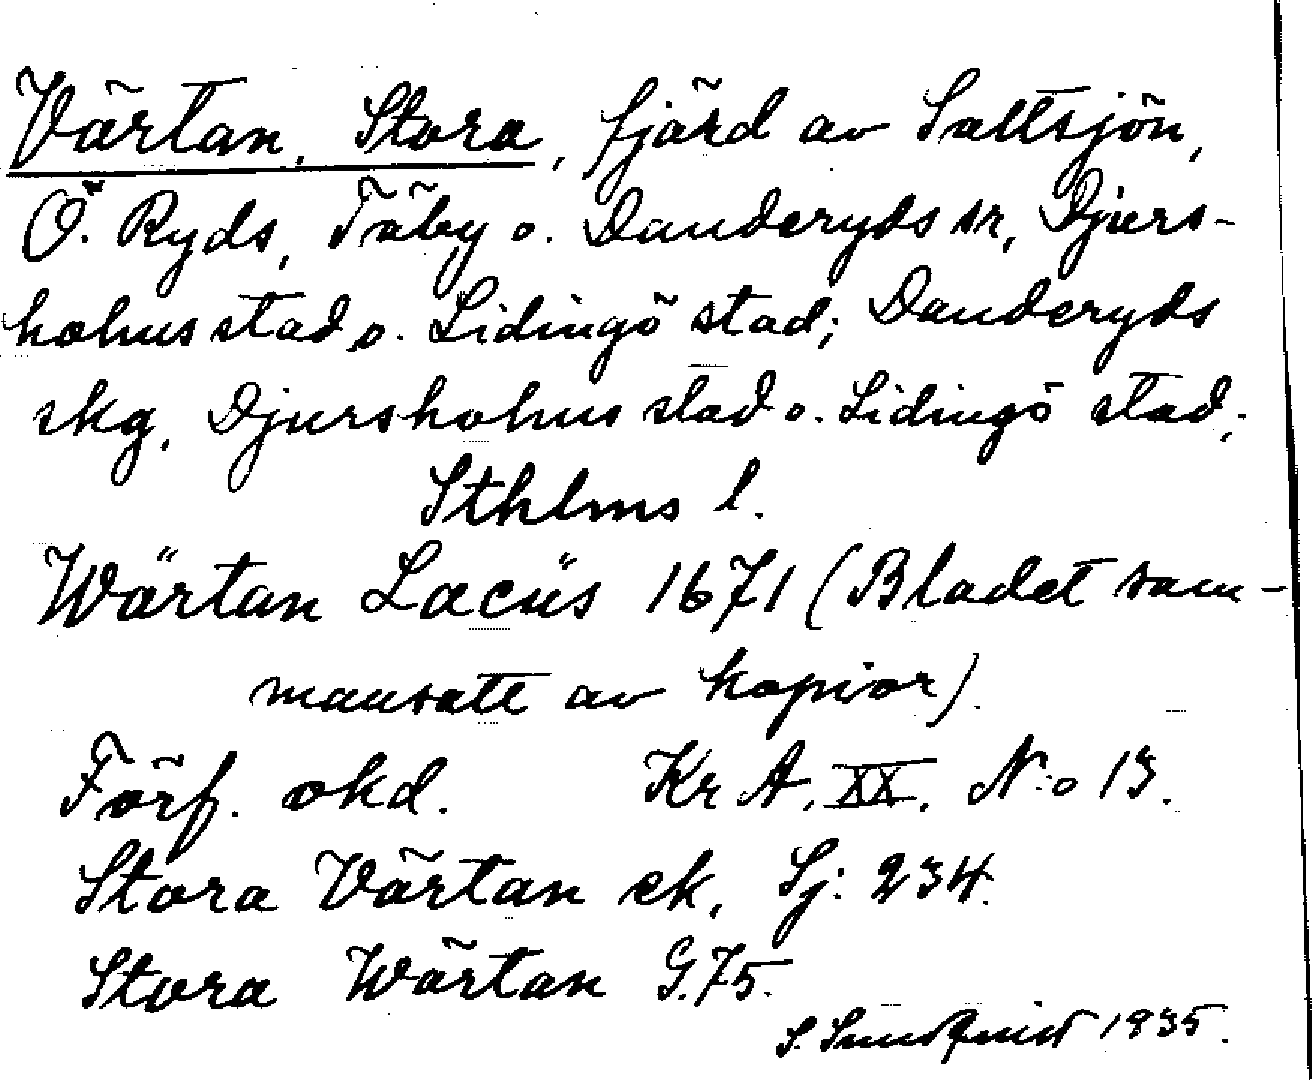 Värtan, Stora, fjärd av Saltsjön,
Ö. Ryds, Täby o. Danderyds sr, Djurs-
holms stad o. Lidingö stad; Danderyds
skg, Djursholms stad o. Lidingö stad;
Sthlms l.
Wärtan Lacüs 1671 (Bladet sam-
mansatt av kopior).
Förf. okd. Kr A. XX. N:o 13.
Stora Värtan ek, Sj: 234.
Stora Wärtan G.75.
S. Sundqvist 1935.